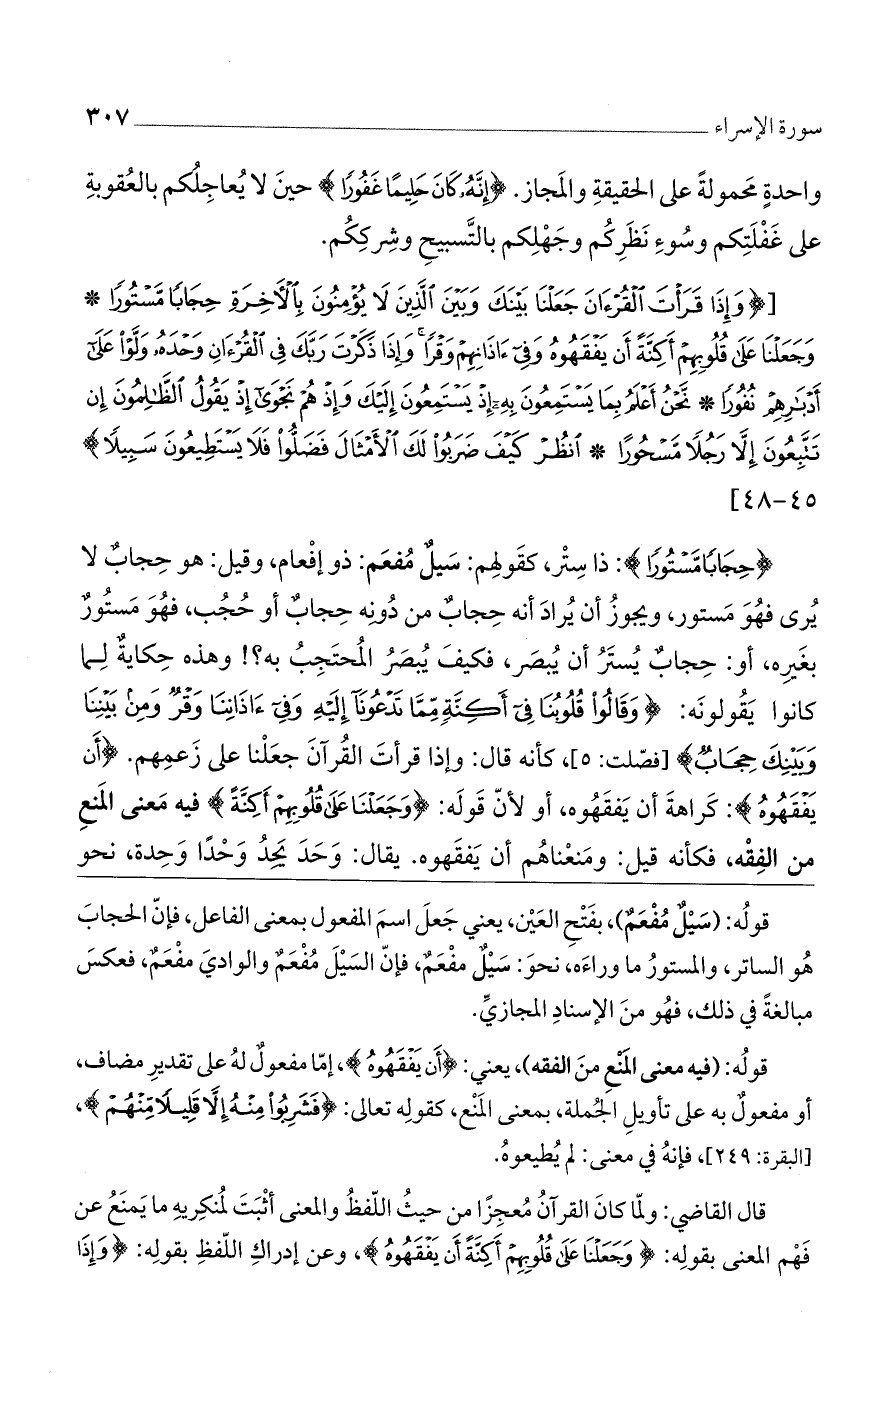 سورة الإسراء ٣٠٧
واحدةٍ مَحمولةً على الحقيقةِ والمَجاز. ﴿إِنَّهُۥ كَانَ حَلِيمًا غَفُورًا﴾ حينَ لا يُعاجِلُكم بالعُقوبةِ
على غَفْلَتِكم وسُوءِ نَظَرِكُم وجَهْلِكم بالتَّسبيحِ وشِركِكُم.
[﴿وَإِذَا قَرَأْتَ ٱلْقُرْءَانَ جَعَلْنَا بَيْنَكَ وَبَيْنَ ٱلَّذِينَ لَا يُؤْمِنُونَ بِٱلْأَخِرَةِ حِجَابًا مَّسْتُورًا *
وَجَعَلْنَا عَلَىٰ قُلُوبِهِمْ أَكِنَّةً أَن يَفْقَهُوهُ وَفِىٓ ءَاذَانِهِمْ وَقْرًا ۚ وَإِذَا ذَكَرْتَ رَبَّكَ فِى ٱلْقُرْءَانِ وَحْدَهُۥ وَلَّوْا۟ عَلَىٰٓ
أَدْبَٰرِهِمْ نُفُورًا * نَّحْنُ أَعْلَمُ بِمَا يَسْتَمِعُونَ بِهِۦٓ إِذْ يَسْتَمِعُونَ إِلَيْكَ وَإِذْ هُمْ نَجْوَىٰٓ إِذْ يَقُولُ ٱلظَّٰلِمُونَ إِن
تَتَّبِعُونَ إِلَّا رَجُلًا مَّسْحُورًا * ٱنظُرْ كَيْفَ ضَرَبُوا۟ لَكَ ٱلْأَمْثَالَ فَضَلُّوا۟ فَلَا يَسْتَطِيعُونَ سَبِيلًا﴾
٤٥-٤٨]
﴿حِجَابًا مَّسْتُورًا﴾: ذا سِتْر، كقَولِهم: سَيلٌ مُفعَم: ذو إفْعام، وقيل: هو حِجابٌ لا
يُرى فهُوَ مَستور، ويجوزُ أن يُرادَ أنه حِجابٌ من دُونِه حِجابٌ أو حُجُب، فهُوَ مَستورٌ
بغَيرِه، أو: حِجابٌ يُستَرُ أن يُبصَر، فكيفَ يُبصَرُ المُحتَجِبُ به؟! وهذه حِكايةٌ لِما
كانوا يَقُولونَه: ﴿وَقَالُوا۟ قُلُوبُنَا فِىٓ أَكِنَّةٍ مِّمَّا تَدْعُونَآ إِلَيْهِ وَفِىٓ ءَاذَانِنَا وَقْرٌ وَمِنۢ بَيْنِنَا
وَبَيْنِكَ حِجَابٌ﴾ [فصّلت: ٥]، كأنه قال: وإذا قرأتَ القُرآنَ جعَلْنا على زَعمِهم. ﴿أَن
يَفْقَهُوهُ﴾: كَراهةَ أن يَفقَهُوه، أو لأنّ قَولَه: ﴿وَجَعَلْنَا عَلَىٰ قُلُوبِهِمْ أَكِنَّةً﴾ فيه مَعنى المَنعِ
من الفِقْه، فكأنه قيل: ومَنَعْناهُم أن يَفقَهوه. يقال: وَحَدَ يَحِدُ وَحْدًا وَحِدة، نحو
قولُه: (سَيْلٌ مُفْعَمٌ)، بفَتْحِ العَيْن، يعني جَعلَ اسمَ المفعول بمعنى الفاعل، فإنّ الحجابَ
هُو الساتر، والمستورُ ما وراءَه، نحوَ: سَيْلٌ مفْعَمٌ، فإنّ السَيْلَ مُفْعَمٌ والواديَ مفْعَمٌ، فعكسَ
مبالغةً في ذلك، فهُو منَ الإسنادِ المجازيِّ.
قولُه: (فيه معنى المَنْعِ منَ الفقه)، يعني: ﴿أَن يَفْقَهُوهُ﴾، إمّا مفعولٌ لهُ على تقديرِ مضاف،
أو مفعولٌ به على تأويلِ الجُملة، بمعنى المَنْع، كقولِه تعالى: ﴿فَشَرِبُوا۟ مِنْهُ إِلَّا قَلِيلًا مِّنْهُمْ﴾،
[البقرة: ٢٤٩]، فإنهُ في معنى: لم يُطيعوهُ.
قال القاضي: ولمّا كانَ القرآنُ مُعجِزًا من حيثُ اللّفظُ والمعنى أثْبَتَ لمُنكِريهِ ما يَمنَعُ عن
فَهْم المعنى بقولِه: ﴿وَجَعَلْنَا عَلَىٰ قُلُوبِهِمْ أَكِنَّةً أَن يَفْقَهُوهُ﴾، وعن إدراكِ اللّفظِ بقولِه: ﴿وَإِذَا